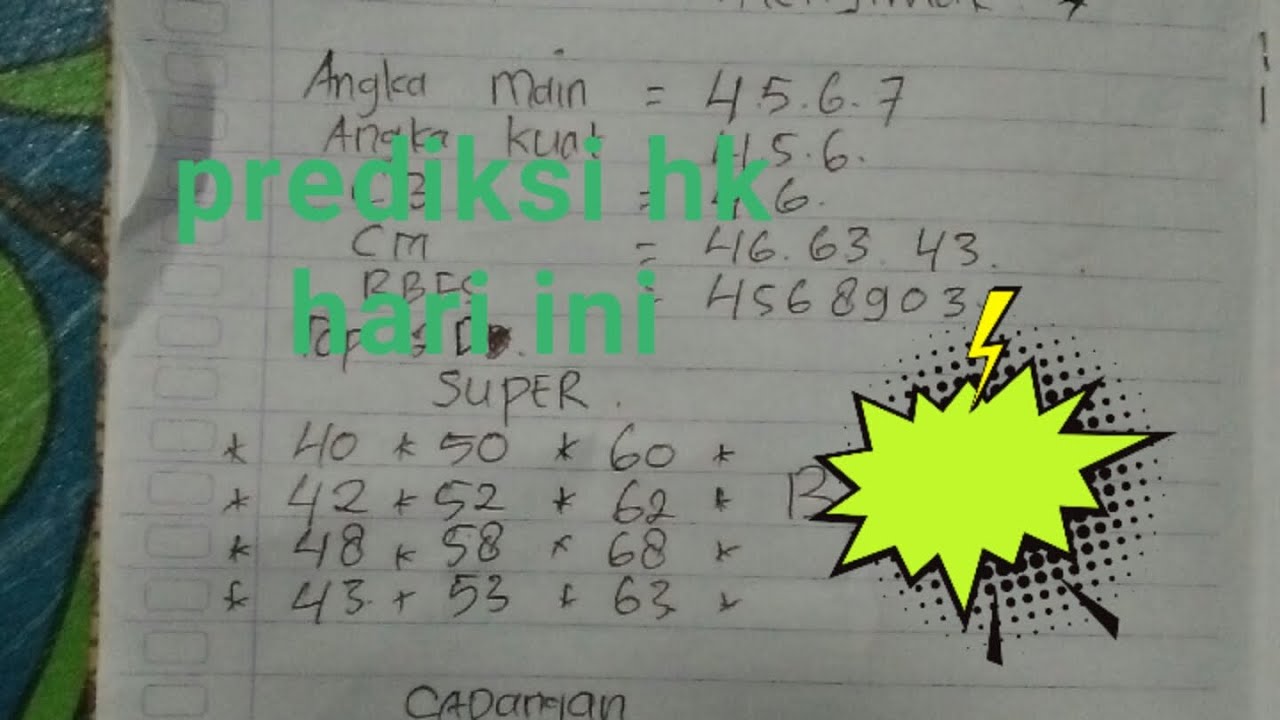 Angka main = 4.5.6.7
Angka kuat 4.5.6.
prediksi hk
= 4 6.
CM = 46.63.43.
BBFS = 4568903
hari ini
SUPER.
* 40 * 50 * 60 *
* 42 * 52 * 62 * B
* 48 * 58 * 68 *
* 43 + 53 * 63 *
CADangan